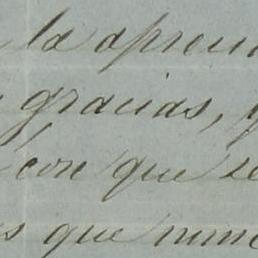 la apreci
gracias, y
con que se
s que nunc